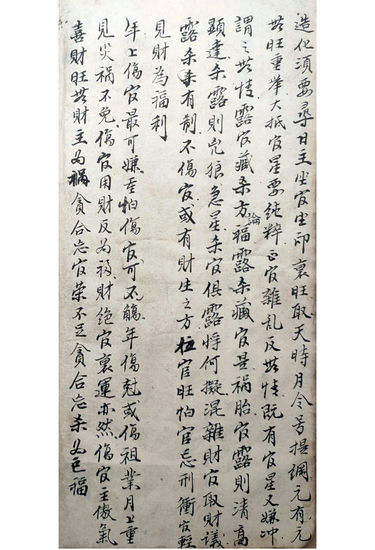 造化須要尋日主坐官坐印衰旺取天時月令号提綱元有元
無旺重举大抵官星要純粹正官雜乱反無情既有官星又嫌冲
謂之無情露官藏杀方論福露杀藏官是禍胎官露則清高
顕達杀露則兇狼急星杀官俱露將何擬混雜財官取財議
露杀杀有制不傷官或有財生之方官旺怕官忌刑衝官輕
見財為福利
年上傷官最可嫌重怕傷官可不觸年傷尅或傷祖業月上重
見災禍不免傷官用財反為福財絕官衰運亦然傷官主傲氣
喜財旺無財主为禍貪合忘官榮不足貪合忘杀为己福